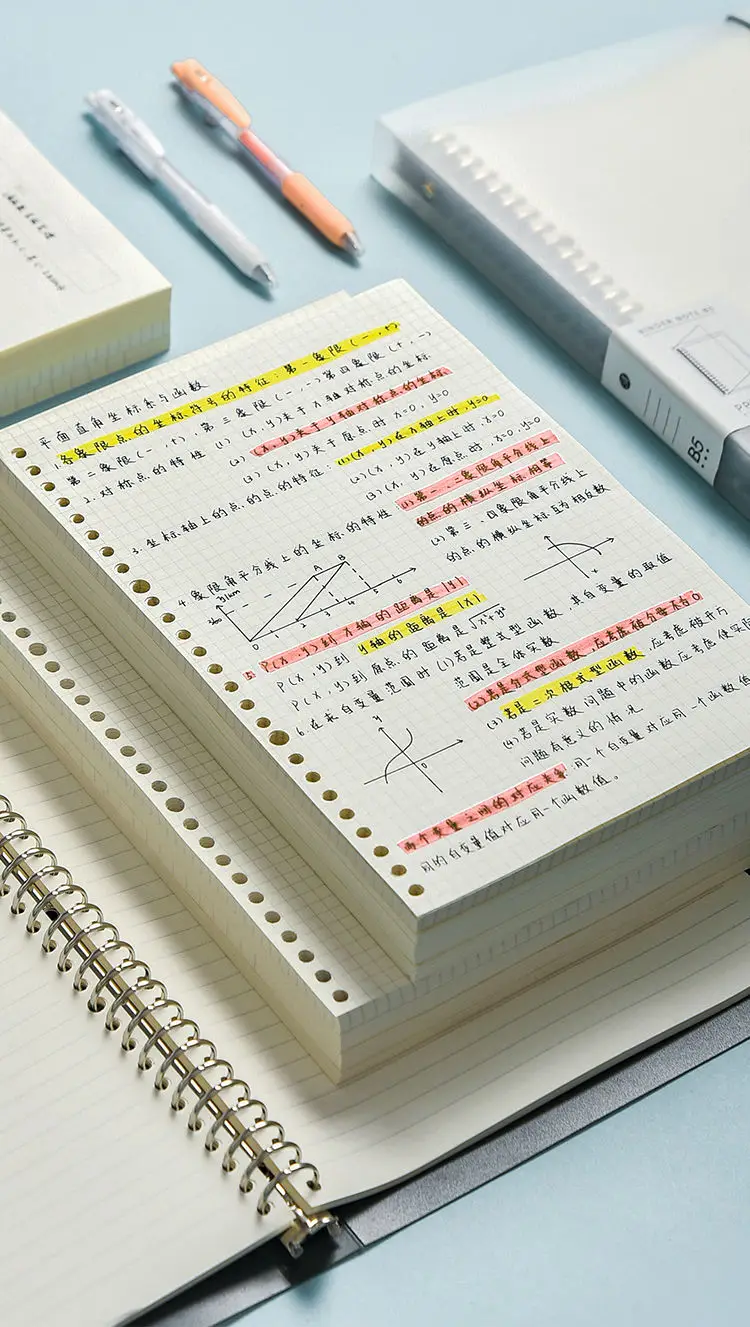 平面直角坐标系与函数
1.各象限点的坐标符号的特征：第一象限(-,+)
第二象限(-,+),第三象限(-,-)第四象限(+,-)
2.对称点的特性 (1) (x,y)关于x轴对称点的坐标
(2) (x,y)关于y轴对称点的坐标
(3) (x,y)关于原点时 x=0, y=0
3.坐标轴上的点的点的特征:(1)(x,y)在x轴上时,y=0
(2)(x,y)在y轴上时:x=0
(3)(x,y)在原点时.x=0,y=0
4.象限角平分线上的坐标的特性
(1)第一、二象限角平分线上
的点的横纵坐标相等
(2)第三、四象限角平分线上
的点的横纵坐标互为相反数
y/km
A B
0 1 2 3 4 5 6
x
5. P(x,y)到x轴的距离是|y|
P(x,y)到y轴的距离是|x|
P(x,y)到原点的距离是√x²+y²
6.在求自变量范围时(1)若是整式型函数,其自变量的取值
范围是全体实数
(2)若是分式型函数,应考虑使分母不为0
(3)若是二次根式型函数,应考虑被开方
(4)若是实数问题中的函数应考虑使实际
问题有意义的情况
y
0
两个变量之间的对应关系,同一个自变量对应同一个函数值
同的自变量值对应同一个函数值。
BINDER NOTE B5
B5